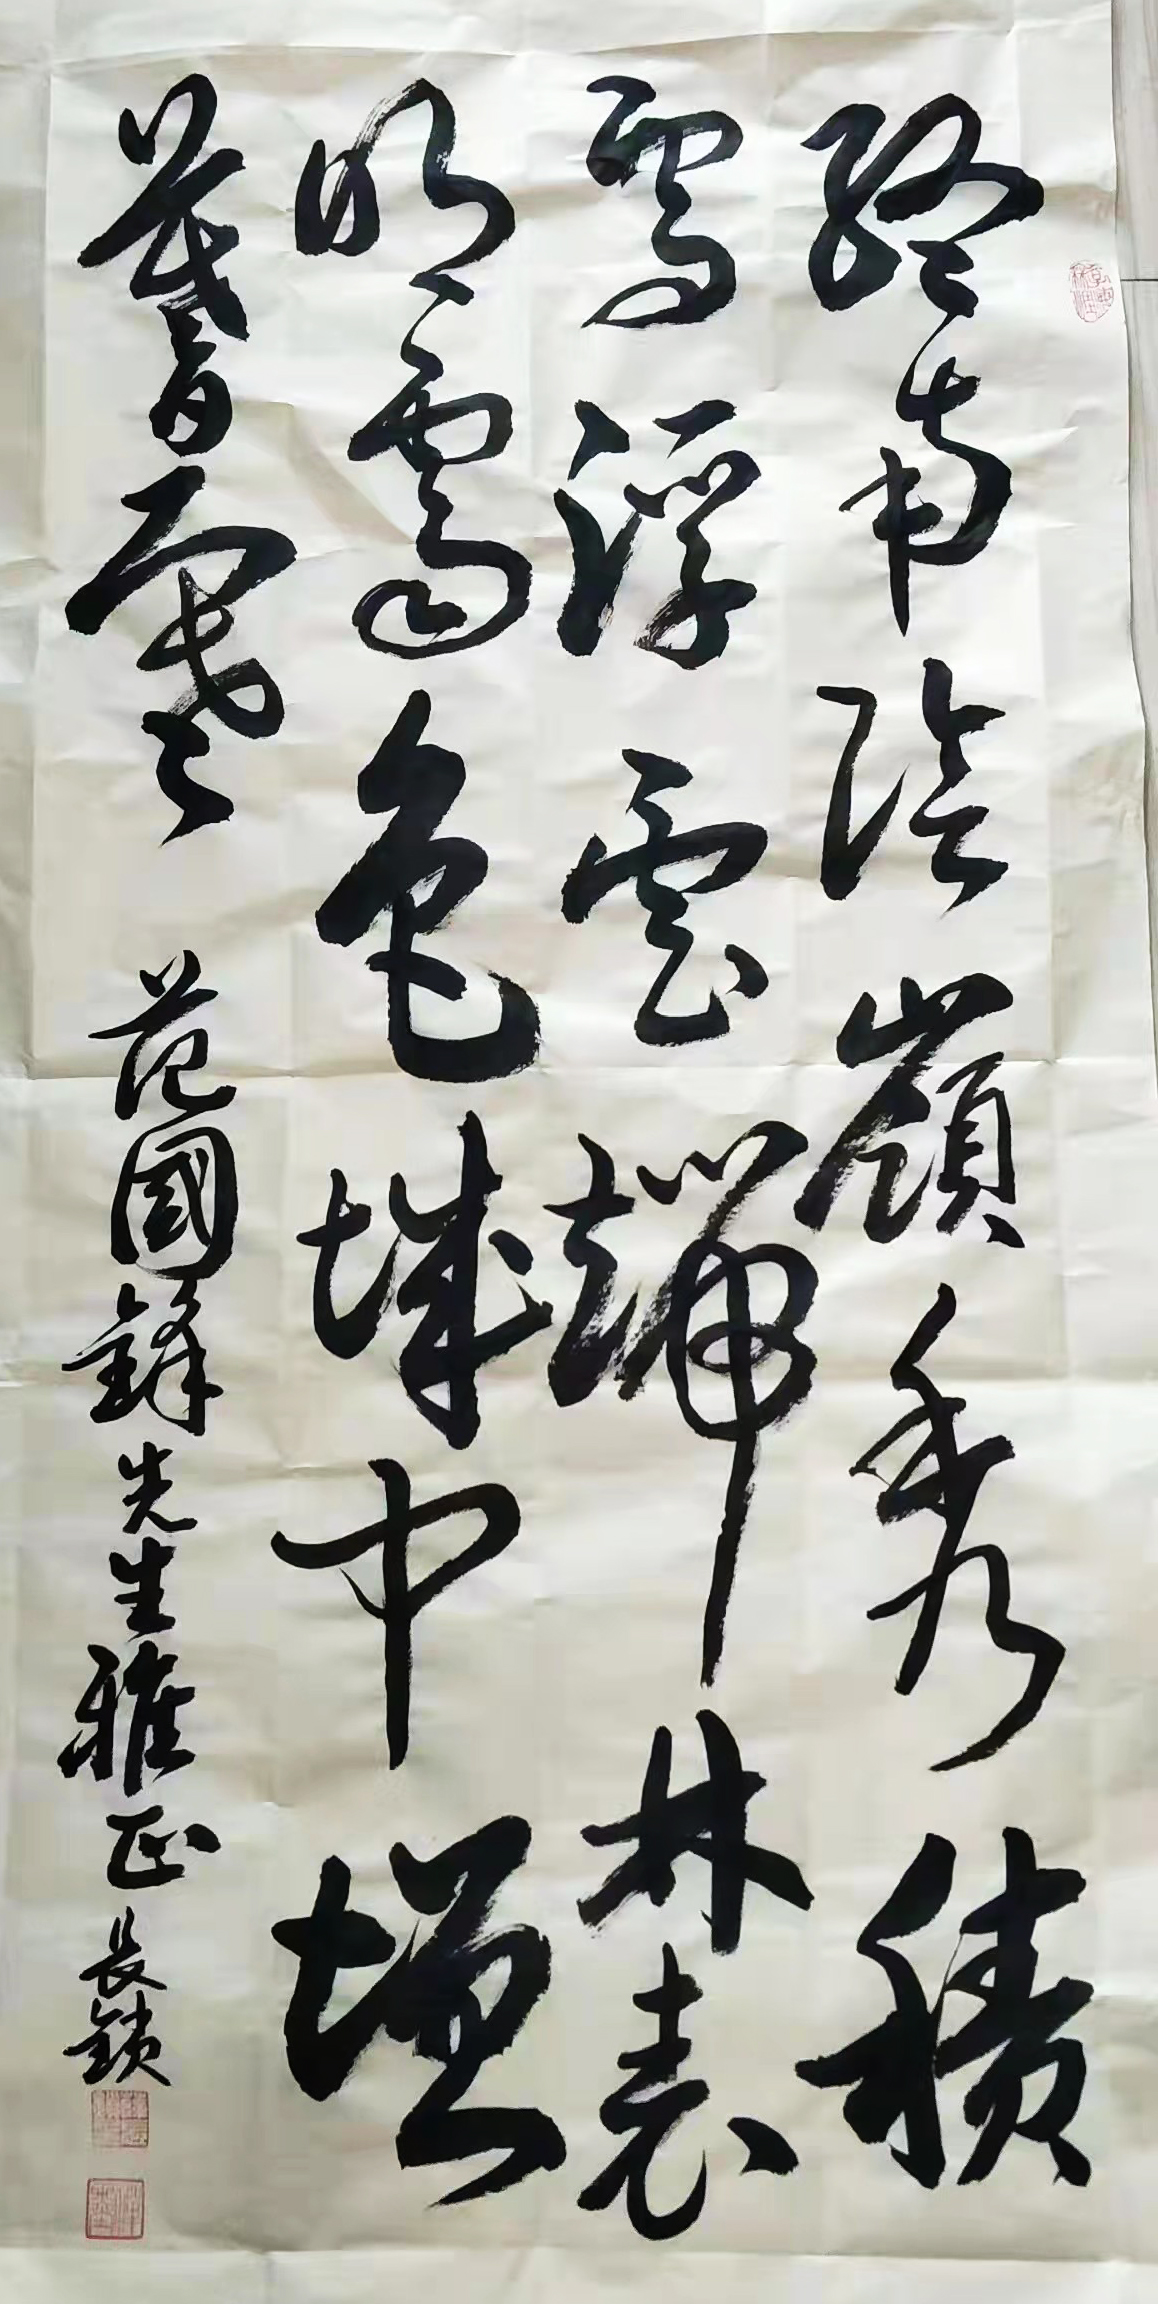 終南陰嶺秀積
雪浮雲端林表
明霽色城中增
暮寒 范國鋒先生雅正 長鎖